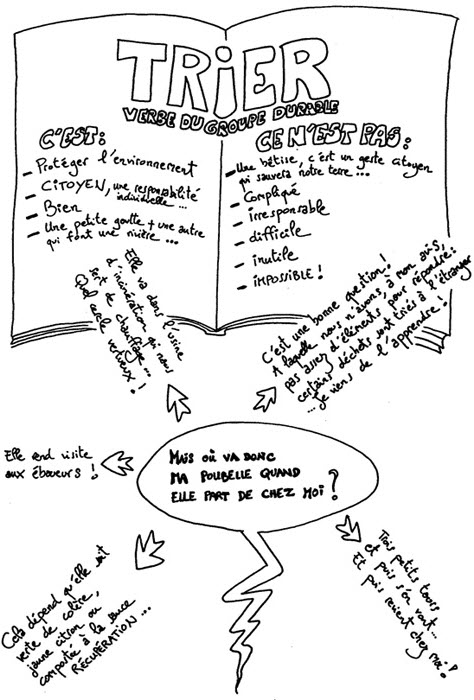 TRiER
VERBE DU GROUPE DURABLE
C'EST :
- Protéger l'environnement
- CITOYEN, une responsabilité
individuelle...
- Bien
- Une petite goutte + une autre
qui font une rivière ...
CE N'EST PAS :
- Une bêtise, c'est un geste citoyen
qui sauvera notre terre ...
- Compliqué
- irresponsable
- difficile
- inutile
- iMPOSSIBLE !
Elle va dans l'usine
d'incinération qui nous
sert de chauffage...
Quel cercle vertueux !
C'est une bonne question !
A laquelle nous n'avons, à mon avis,
pas assez d'éléments pour répondre :
certains déchets sont triés à l'étranger
... je viens de l'apprendre !
Elle rend visite
aux éboueurs !
MAIS OÙ VA DONC
MA POUBELLE QUAND
ELLE PART DE CHEZ MOI ?
Cela dépend qu'elle soit
verte de colère,
jaune citron ou
compostée à la sauce
RÉCUPÉRATION ...
Trois petits tours
et puis s'en vont...
Et puis revient chez moi !